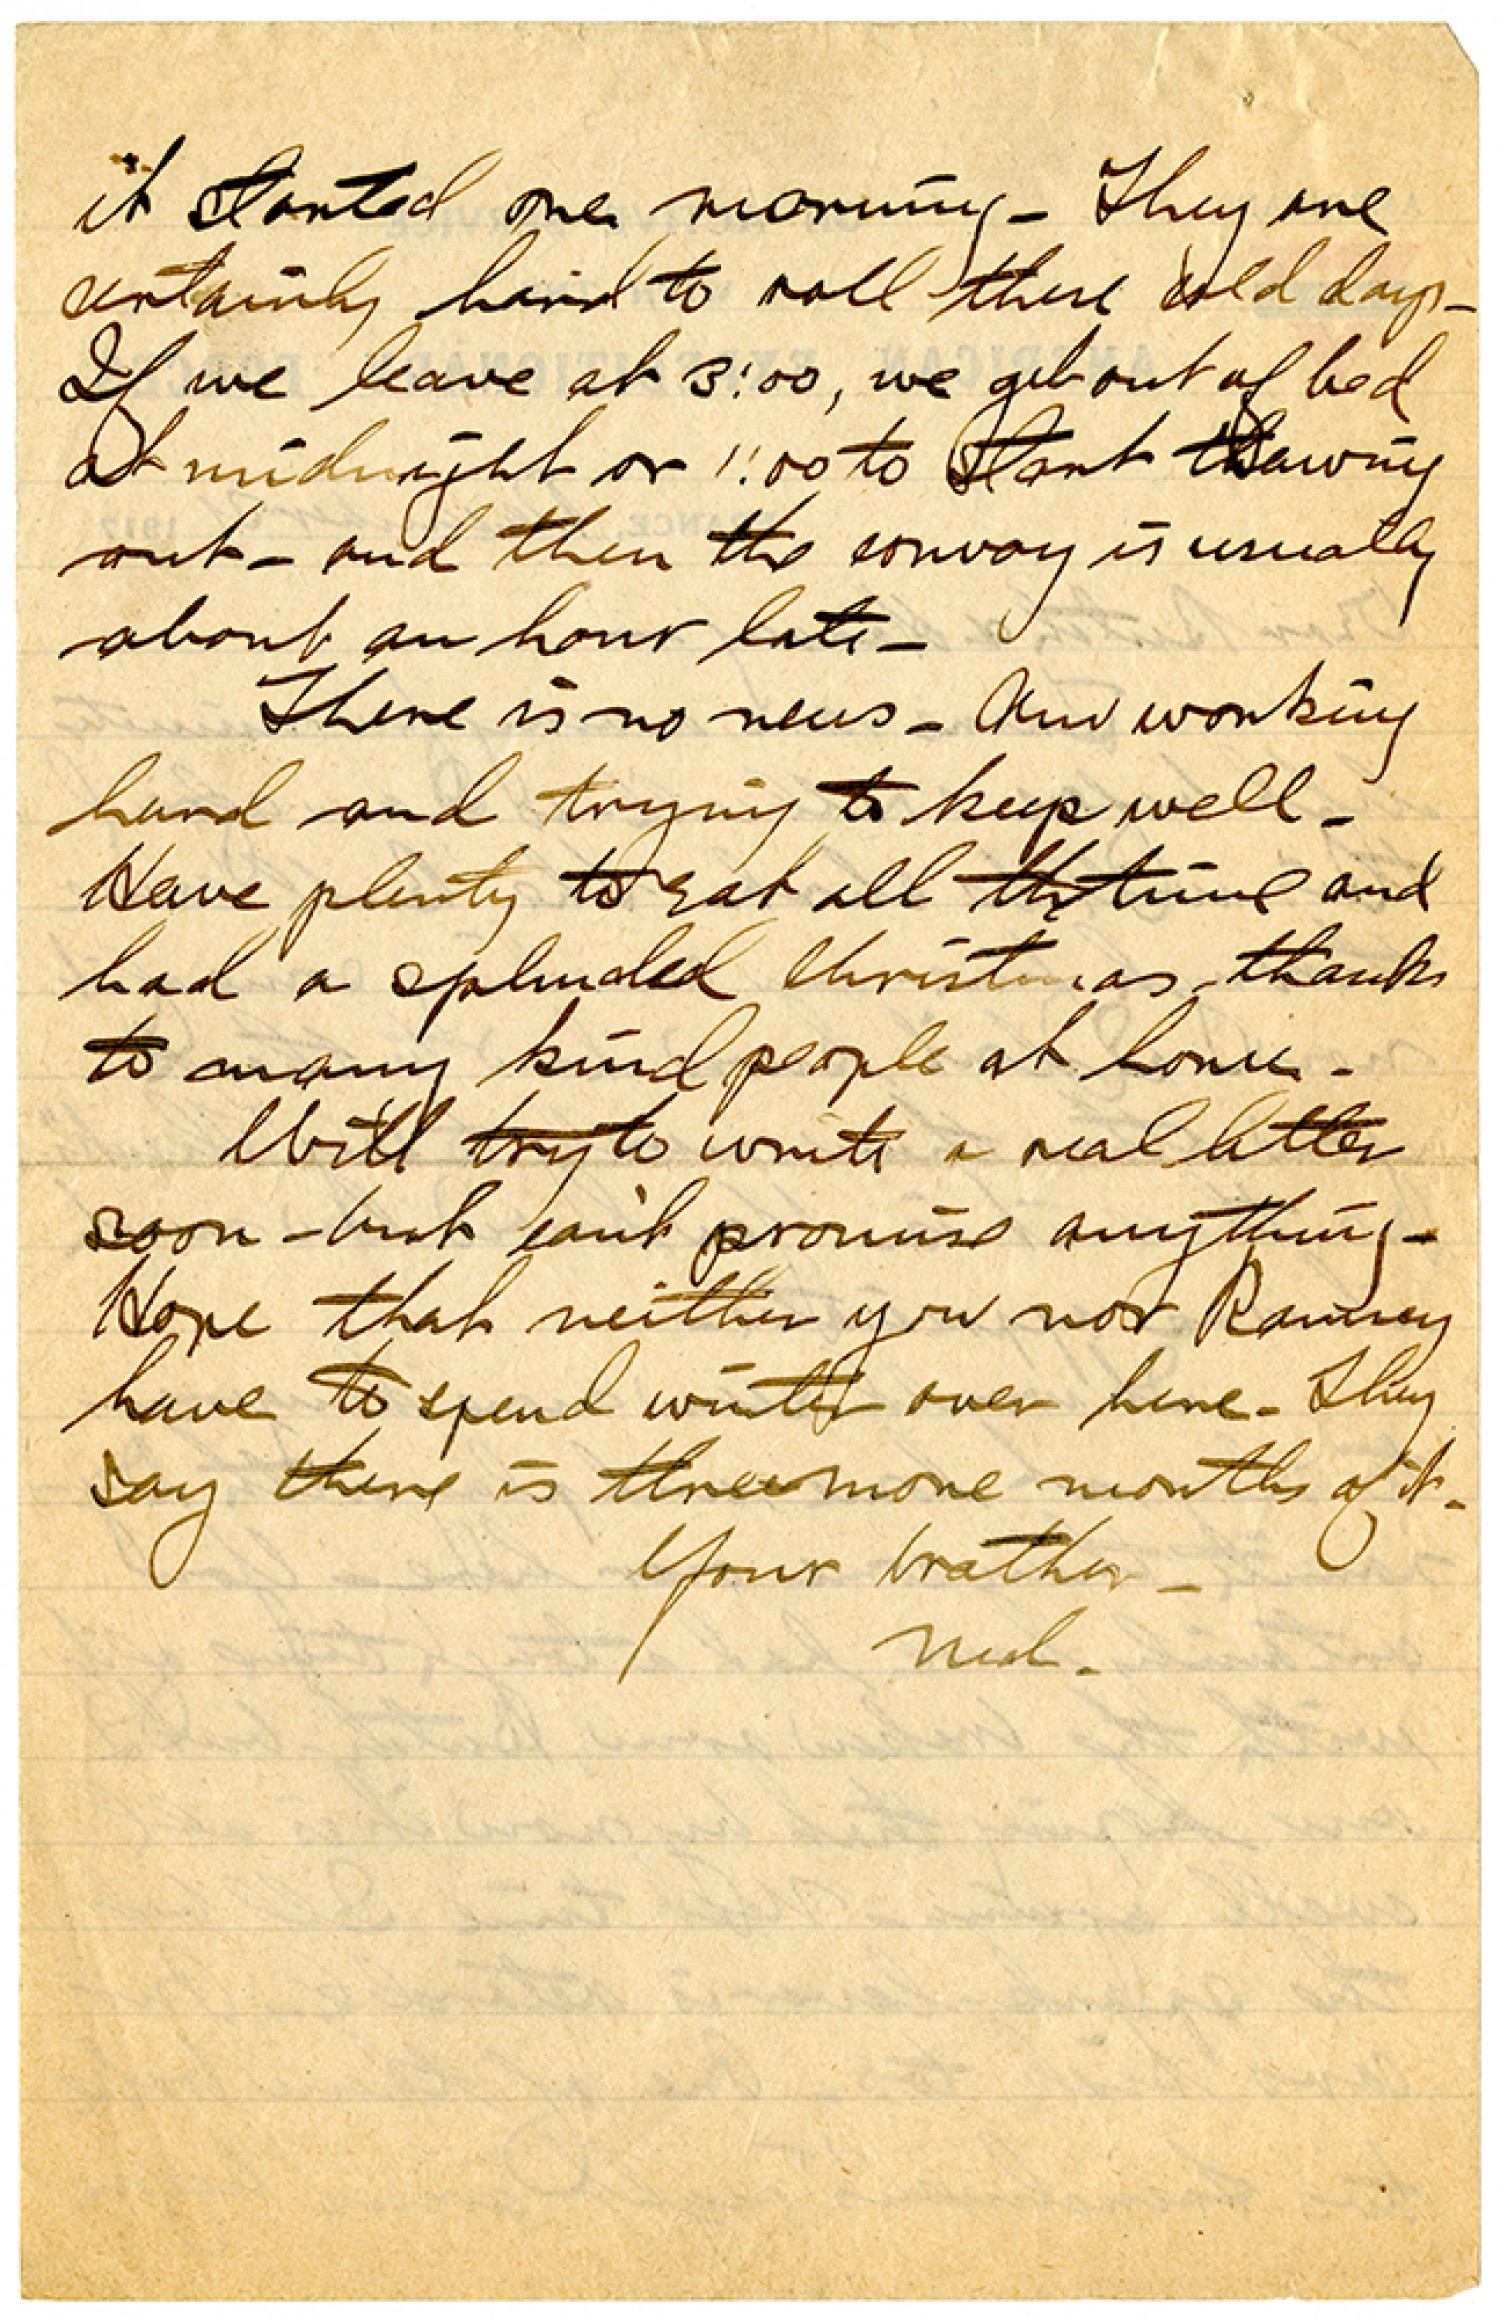 it started one morning - They are
certainly hard to roll these cold days -
If we leave at 3:00, we get out of bed
at midnight or 1:00 to start thawing
out - and then the convoy is usually
about an hour late -
There is no news - Am working
hard and trying to keep well -
Have plenty to eat all the time and
had a splended Christmas - thanks
to many kind people at home -
Will try to write a real letter
soon - but can't promise anything -
Hope that neither you nor Ramsey
have to spend winter over here - They
say there is three more months of it -
Your brother -
Ned -